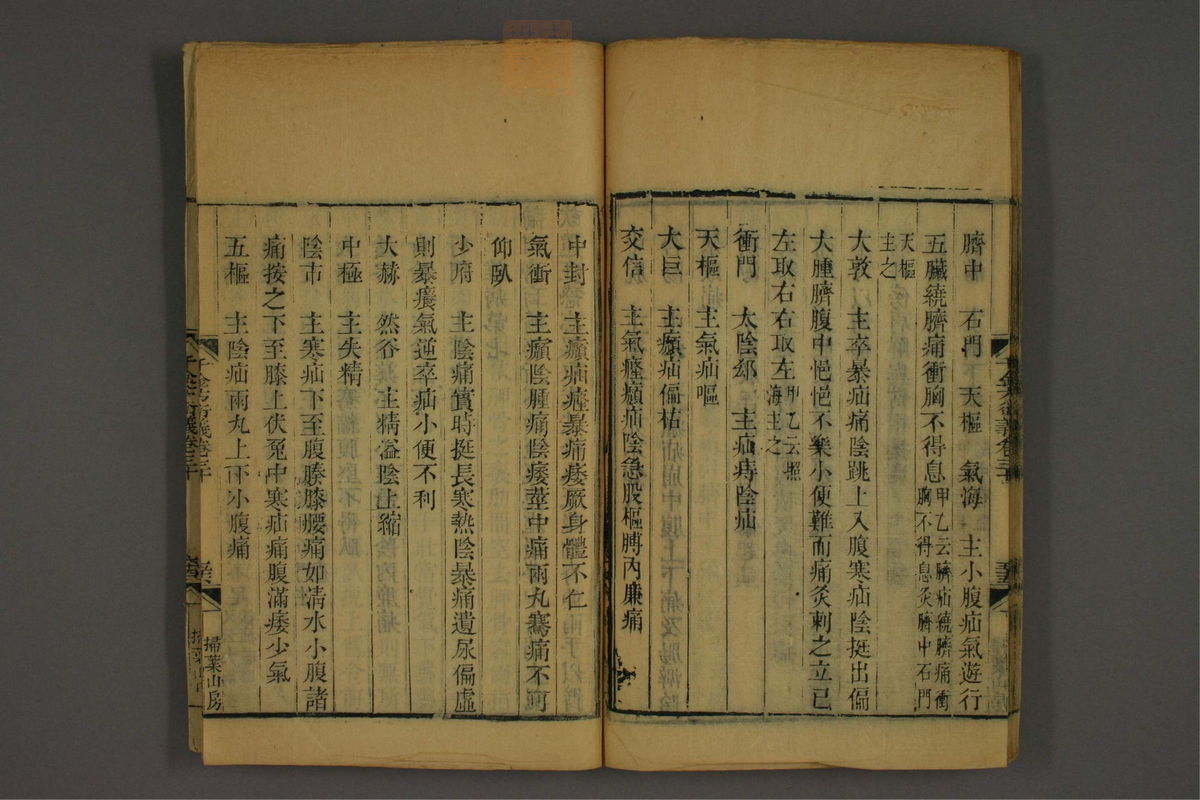 臍中　石門　天樞　氣海　主小腹疝氣遊行
五臟繞臍痛衝胸不得息甲乙云臍疝繞臍痛衝胸不得息灸臍中石門
天樞主之
大敦　主卒暴疝痛陰跳上入腹寒疝陰挺出偏
大腫臍腹中悒悒不樂小便難而痛灸刺之立已
左取右右取左甲乙云照海主之
衝門　太陰郄　主疝痔陰疝
天樞主氣疝嘔
大巨　主㿗疝偏祜
交信　主氣癃㿗疝陰急股樞膊內廉痛
中封　主㿗疝癃暴痛痿厥身體不仁
氣衝　主㿗陰腫痛陰痿莖中痛兩丸騫痛不可
仰臥
少府　主陰痛實時挺長寒熱陰暴痛遺尿偏虛
則暴癢氣逆卒疝小便不利
大赫　然谷　主精溢陰上縮
中極　主失精
陰市　主寒疝下至腹腠膝腰痛如凊水小腹諸
痛按之下至膝上伏兔中寒疝痛腹滿痿少氣
五樞　主陰疝兩丸上下小腹痛
千金方衍義卷三十
掃葉山房